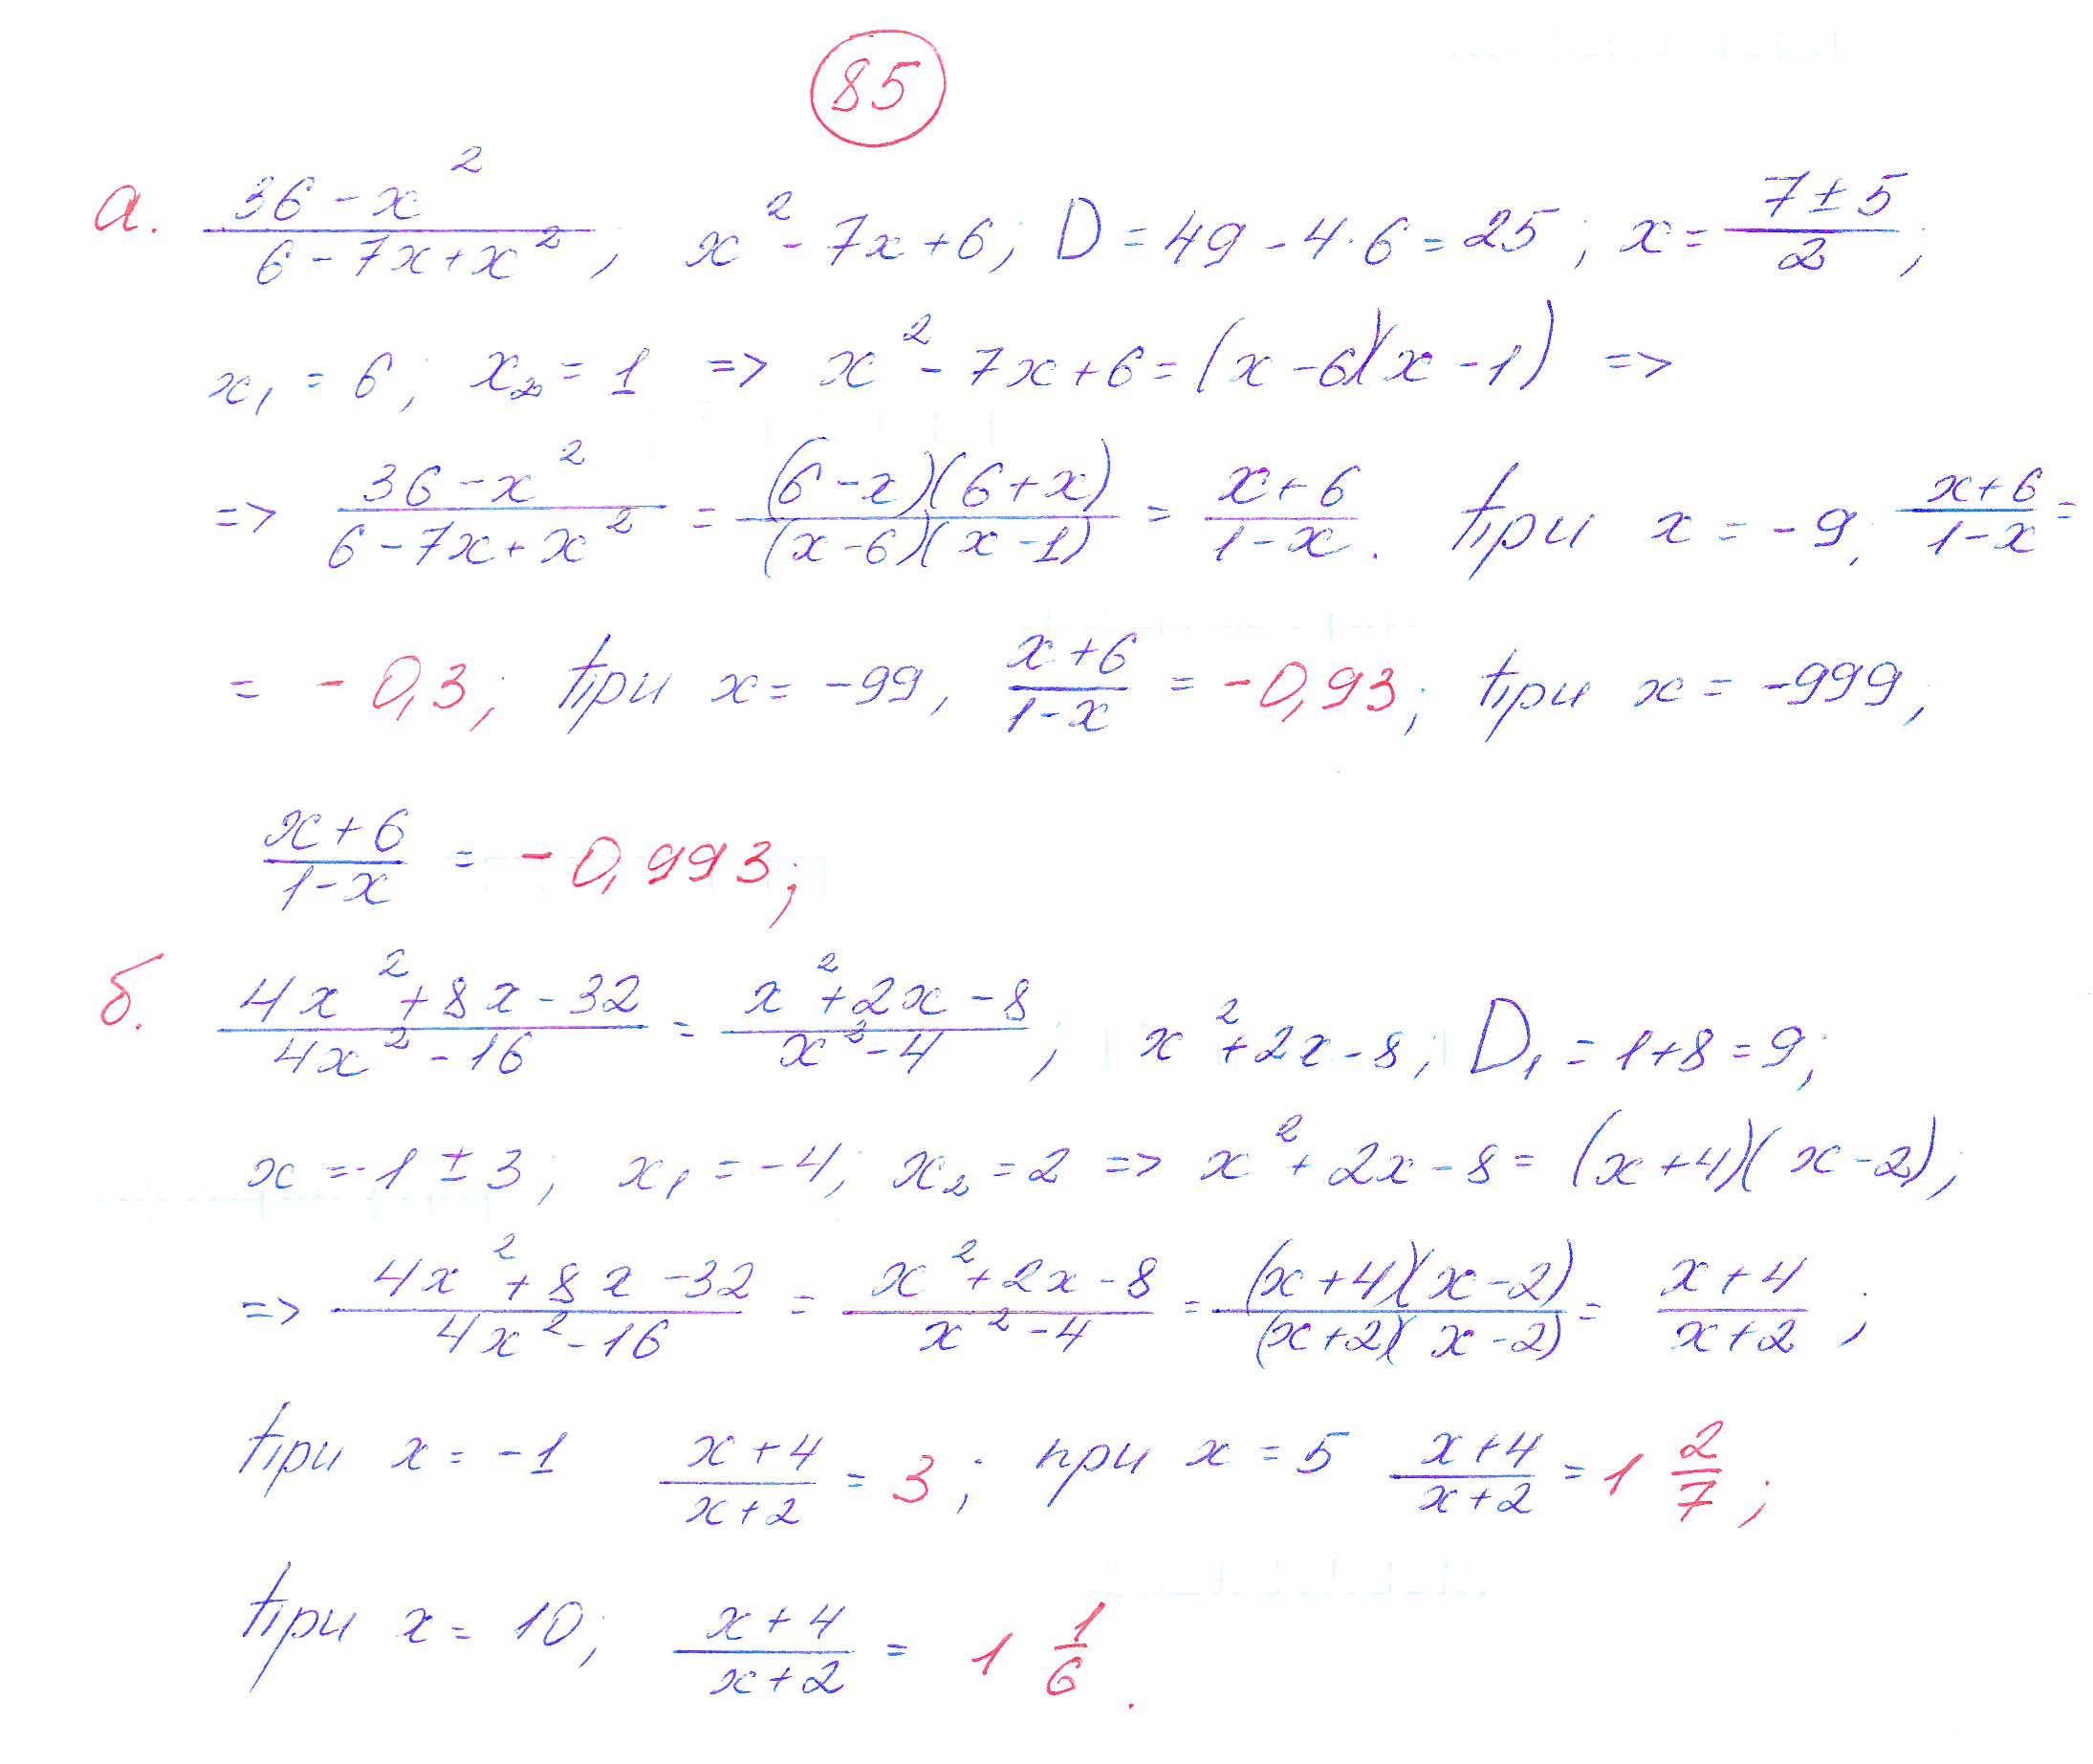 85
а. (36 - x²)/(6 - 7x + x²), x² - 7x + 6; D = 49 - 4·6 = 25; x = (7 ± 5)/2;
x₁ = 6; x₂ = 1 => x² - 7x + 6 = (x - 6)(x - 1) =>
=> (36 - x²)/(6 - 7x + x²) = ((6 - x)(6 + x))/((x - 6)(x - 1)) = (x + 6)/(1 - x). При x = -9, (x + 6)/(1 - x) =
= - 0,3; при x = -99, (x + 6)/(1 - x) = -0,93; при x = -999,
(x + 6)/(1 - x) = - 0,993;
б. (4x² + 8x - 32)/(4x² - 16) = (x² + 2x - 8)/(x² - 4), x² + 2x - 8; D₁ = 1 + 8 = 9;
x = -1 ± 3; x₁ = -4; x₂ = 2 => x² + 2x - 8 = (x + 4)(x - 2),
=> (4x² + 8x - 32)/(4x² - 16) = (x² + 2x - 8)/(x² - 4) = ((x + 4)(x - 2))/((x + 2)(x - 2)) = (x + 4)/(x + 2);
При x = -1 (x + 4)/(x + 2) = 3; при x = 5 (x + 4)/(x + 2) = 1 2/7;
При x = 10; (x + 4)/(x + 2) = 1 1/6.